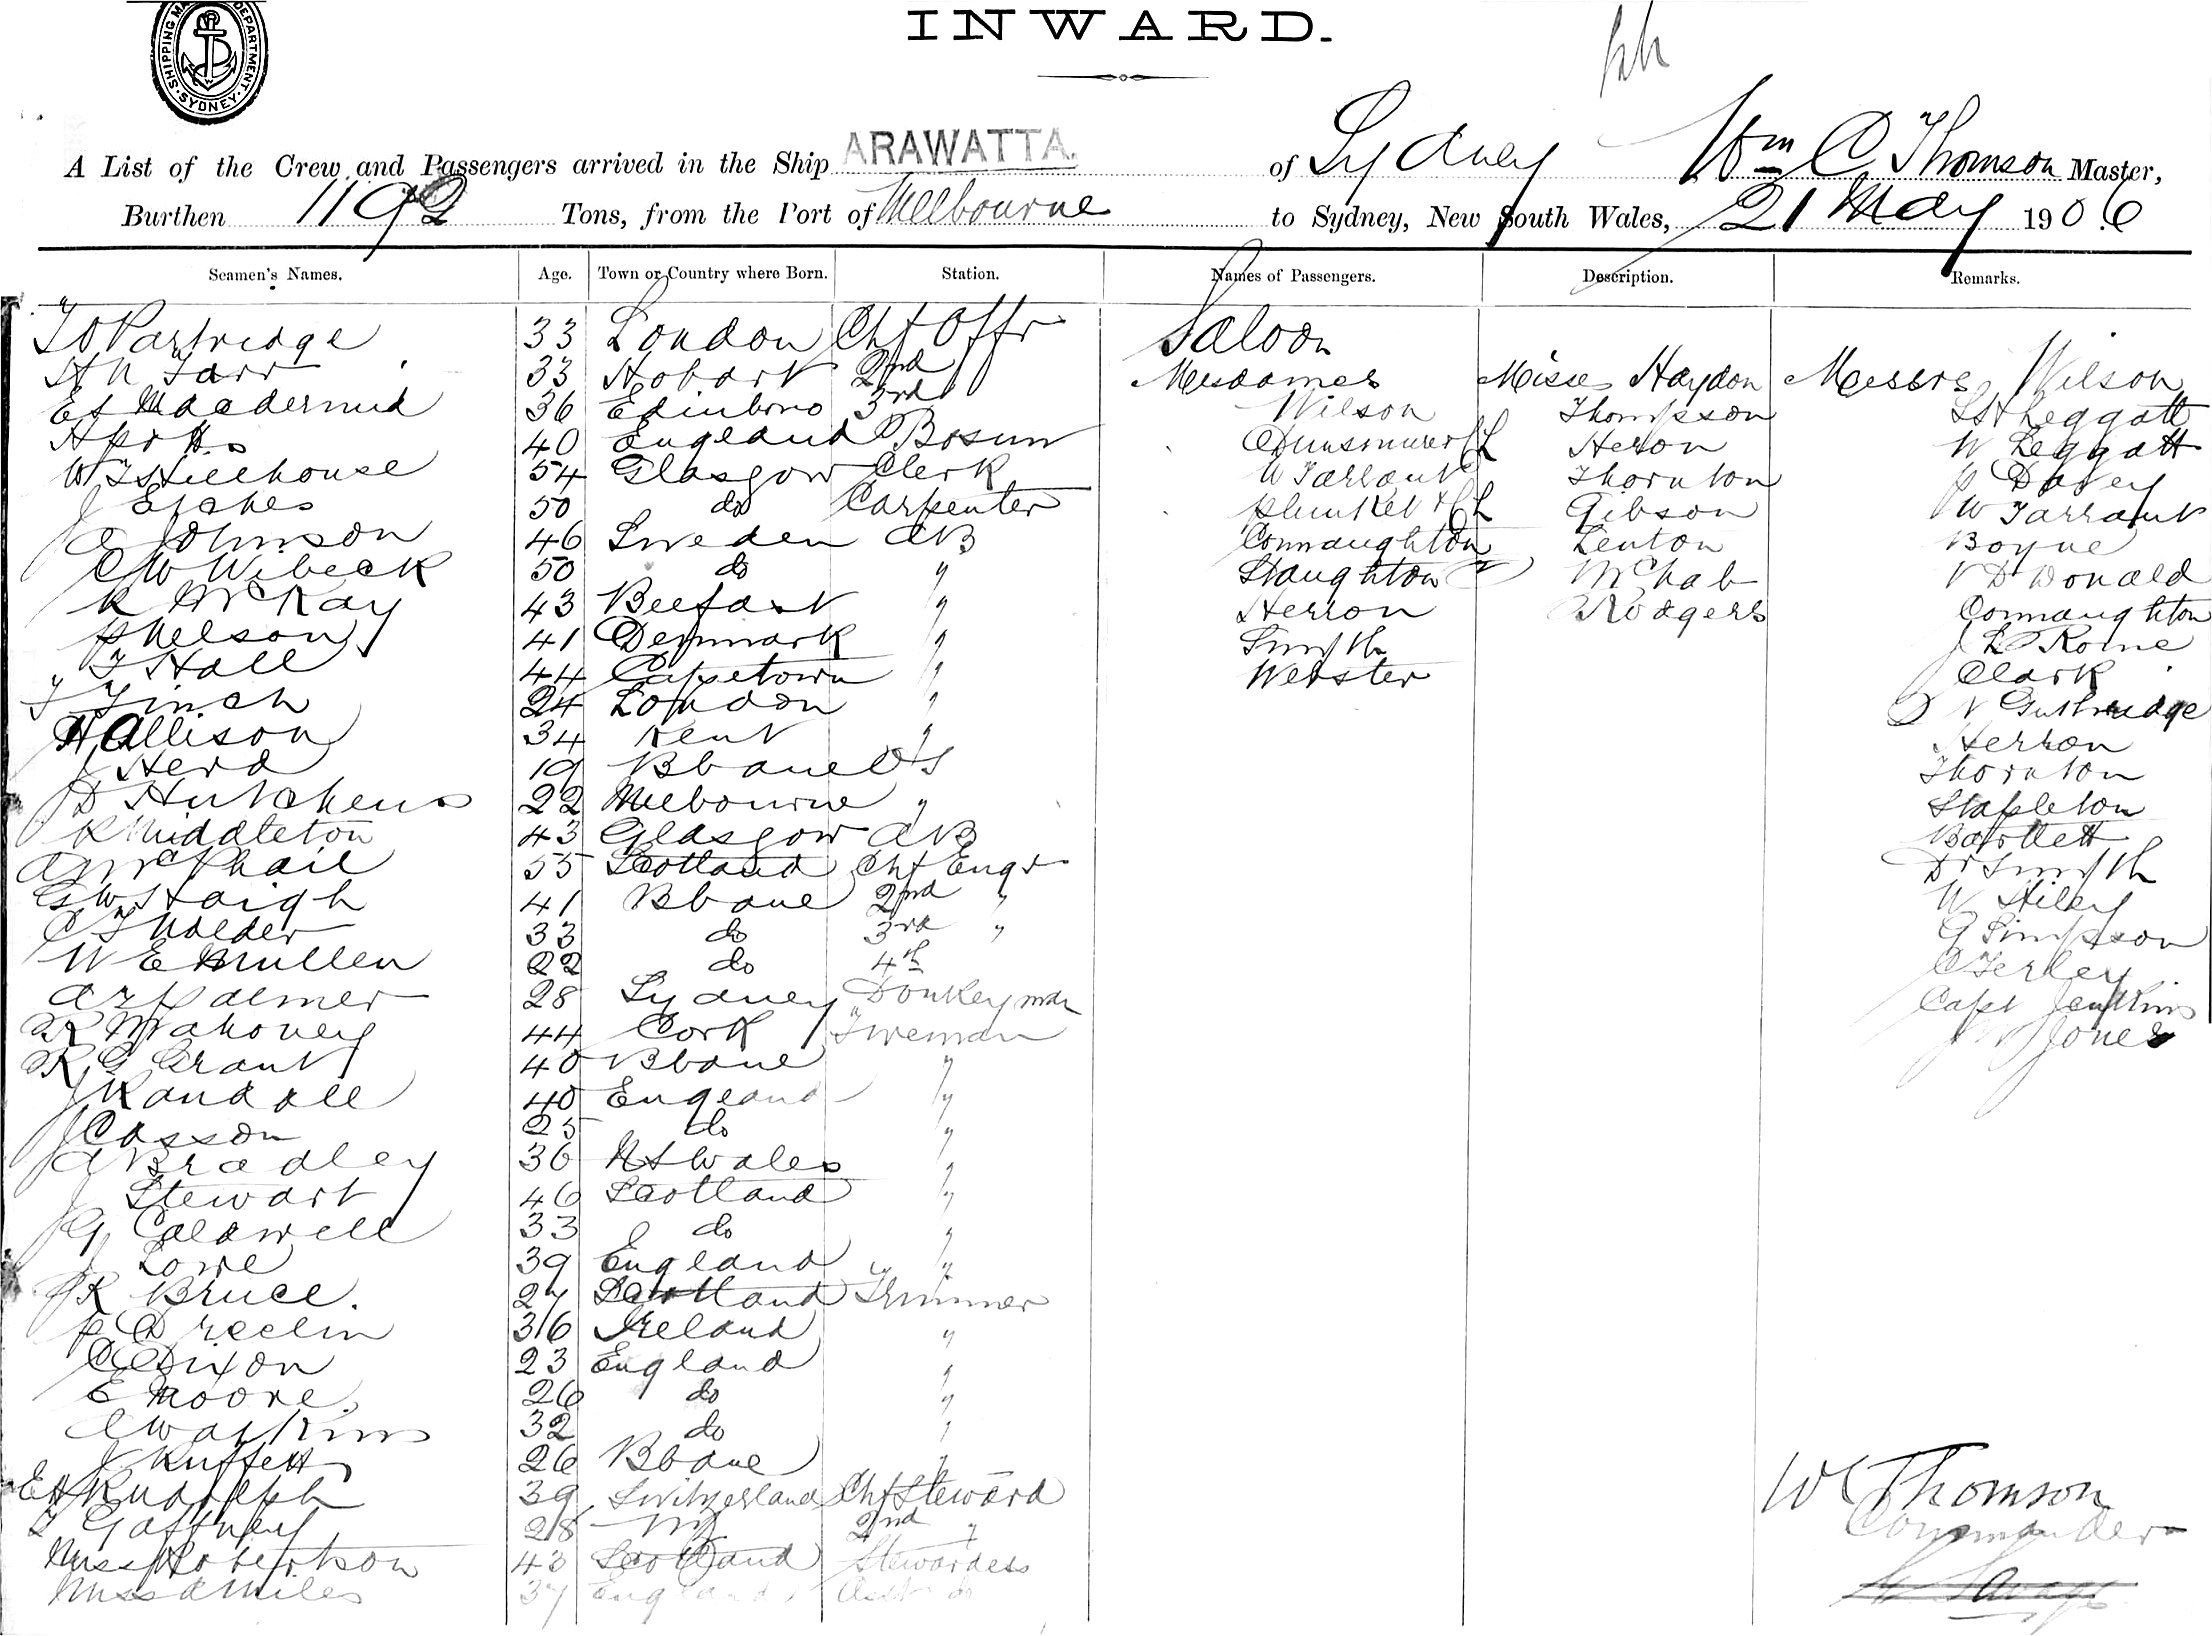 SHIPPING MA DEPARTMENT SYDNEY
INWARD.
A List of the Crew and Passengers arrived in the Ship ARAWATTA. of Sydney Wm C Thomson Master,
Burthen 1192 Tons, from the Port of Melbourne to Sydney, New South Wales, 21 May 1906
Seamen's Names. Age. Town or Country where Born. Station. Names of Passengers. Description. Remarks.
Saloon
T O Partridge 33 London Chf Offr
H N Tarr 33 Hobart 2nd Mesdames Misses Haydon Messrs Wilson
36 Edinboro 3rd Wilson Thompson Leggatt
40 England Bosun Dunsmuier Heron W Leggatt
W T Hillhouse 54 Glasgow Clerk W Tarrant Thornton Davey
J 50 do Carpenter Plunket Gibson W Tarrant
A Johnson 46 Sweden AB Connaughton Lenton Boyne
C W Wibeck 50 do " Staughton McNab Donald
R McKay 43 Belfast " Herron Rodgers Connaughton
P Nelson 41 Denmark " Smyth J L Rome
T Hall 44 Capetown " Webster Clark
T Finch 24 London " Guthridge
H Allison 34 Kent " Herron
J Herd 19 Bbane OS Thornton
D Hutchens 22 Melbourne " Stapleton
R Middleton 43 Glasgow AB Bartlett
A McPhail 55 Scotland Chf Engr Dr Smyth
G W Haigh 41 Bbane 2nd " W Hiley
C T Holder 33 do 3rd " G Simpson
W E Mullen 22 do 4th C Terley
Palmer 28 Sydney Donkeyman Capt Jenkins
Mahoney 44 Cork Fireman Jones
R G Grant 40 Bbane "
J Randall 40 England "
J Casson 25 do "
A Bradley 36 NSWales "
J Stewart 46 Scotland "
G Caldwell 33 do "
J Lowe 39 England "
J R Bruce. 27 Scotland Trimmer
P 36 Ireland "
Dixon 23 England "
E Moore 26 do "
C Watkins 32 do "
J Ruffett 26 Bbane "
E H Rudolph 39 Switzerland Chf Steward W C Thomson
T Gaffney 28 NZ 2nd " Commander
Miss Robertson 43 Scotland Stewardess
Miss A Miles 37 England Asst do Savage